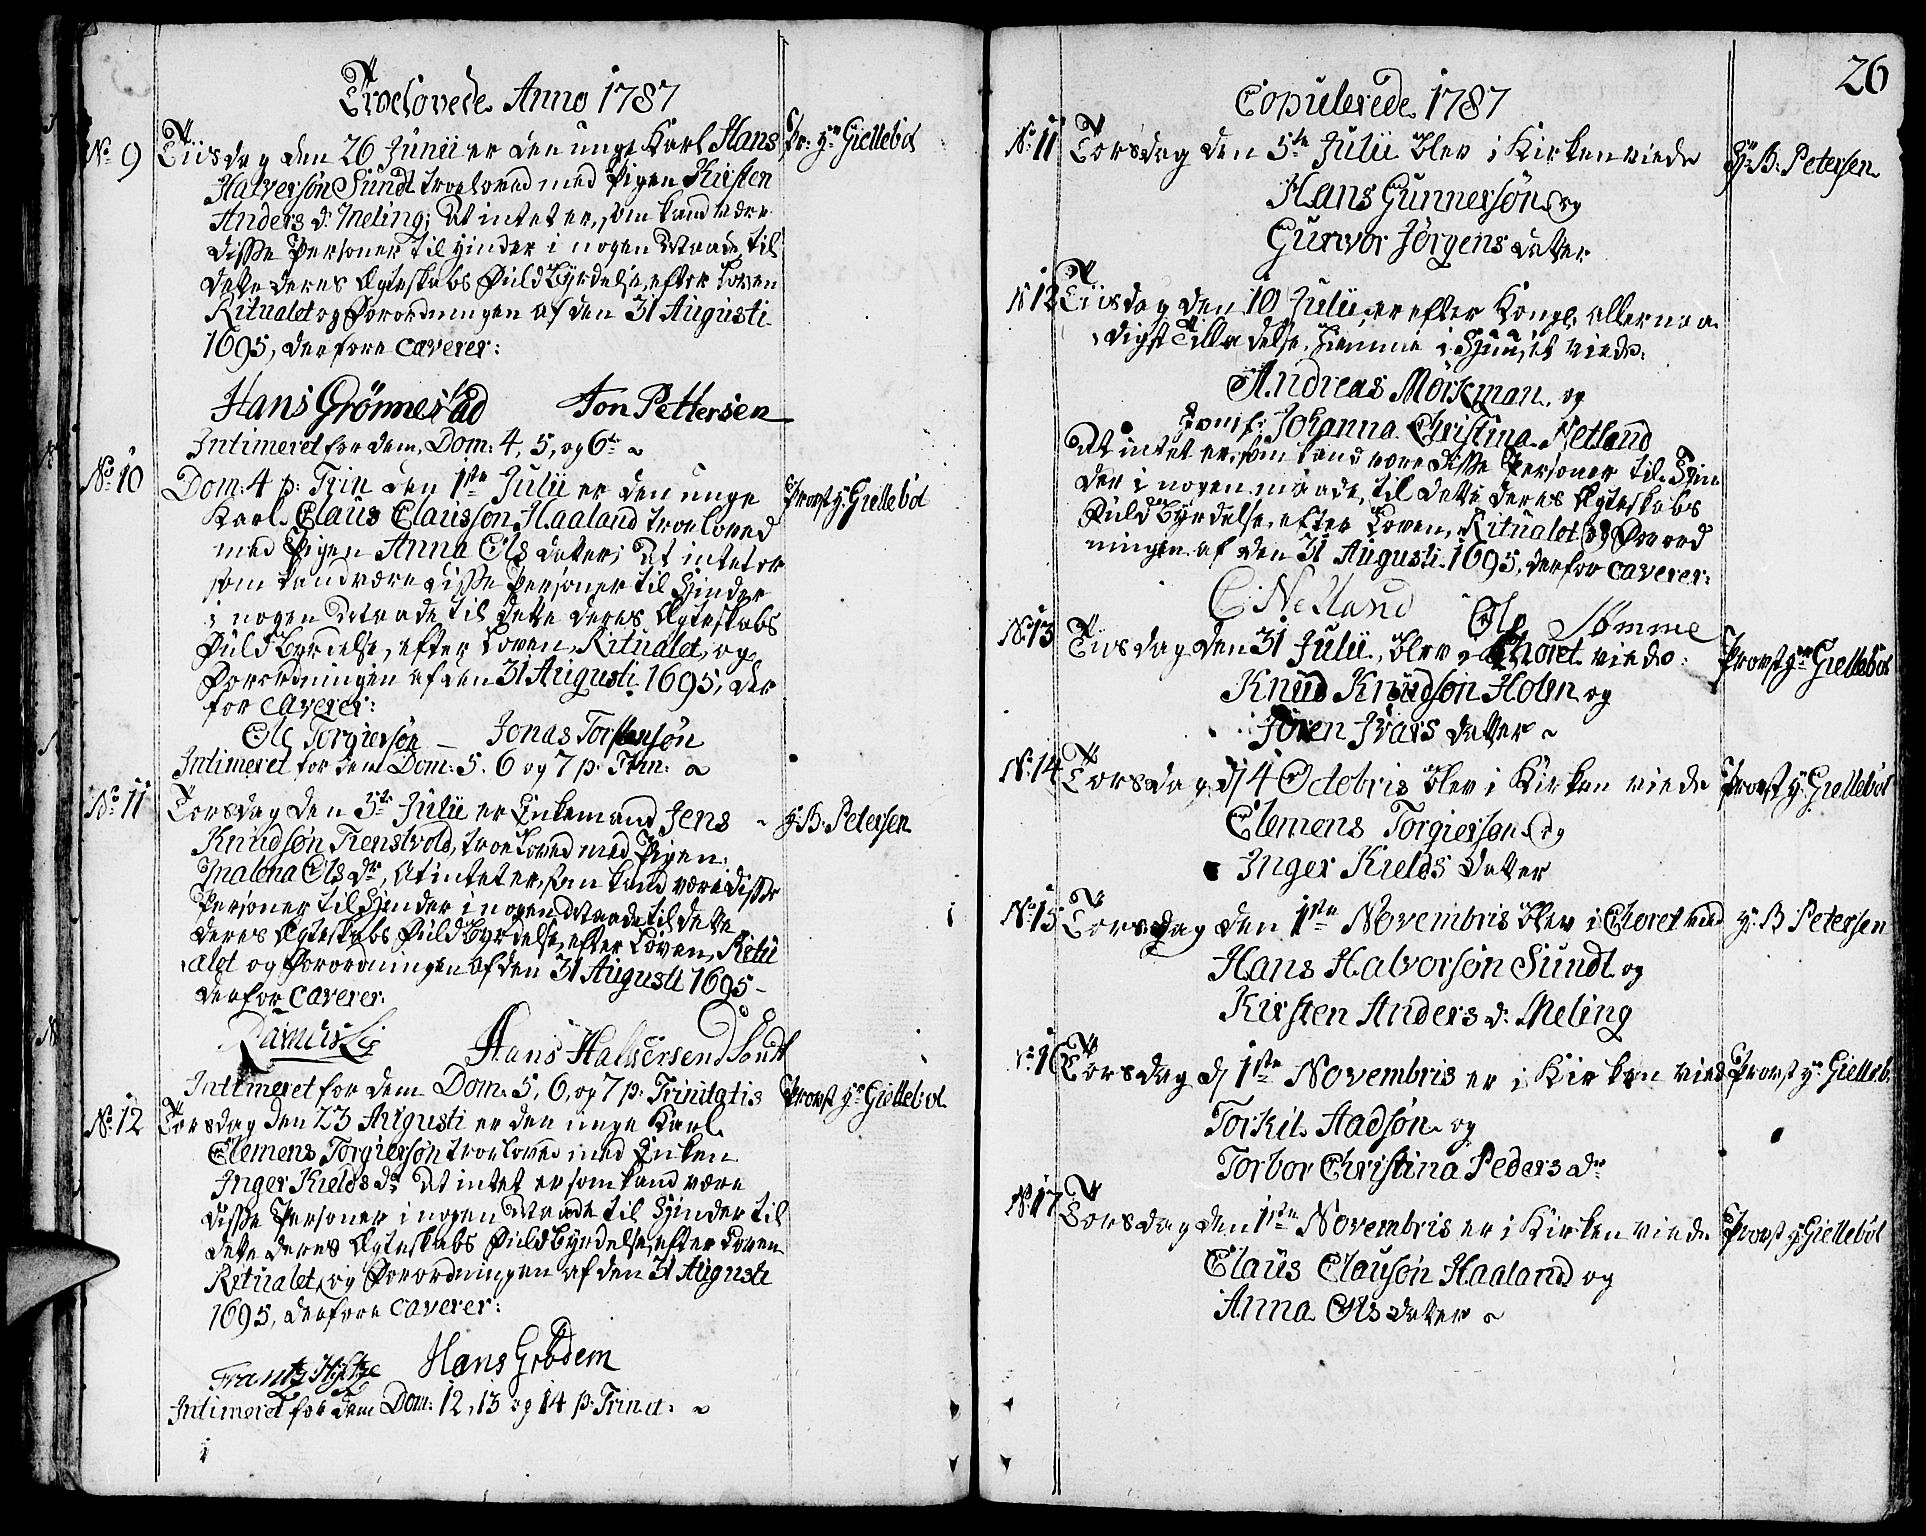 Troelovede Anno 1787
No 9 Tiisdag den 26 Junii er den unge Karl Hans Pr: Hr Giellebøl
Halversøn Sundt troeloved med Pigen Kirsten
Anders d: Meling; At intet er, som kand være
disse Personer til Hinder i nogen Maade til
dette deres Ægteskabs Fuldbyrdelse, efter Loven
Ritualet og Forordningen af den 31 Augusti
1695, derfore caverer:
Hans Grønnestad Jon Pettersen
Intimeret for dem, Dom: 4, 5, og 6te
No 10 Dom: 4 p: Trin den 1ste Julii er den unge Provst Hr Giellebøl
Karl Claus Clausson Haaland troeloved
med Pigen Anna Ols datter; At intet er
som kand være disse Personer til Hinder
i nogen Maade til dette deres Ægteskabs
Fuldbyrdelse, efter Loven, Ritualet, og
Forordningen af den 31 Augusti 1695, der
for caverer:
Ole Torgiersøn Jonas Torstensøn
Intimeret for dem Dom: 5. 6 og 7 p: Trin:
No 11 Torsdag den 5te Julii er Enkemand Jens Hr B: Petersen
Knudsøn Tienstvold, troeloved med Pigen
Malena Ols dr, At intet er, som kand være disse
Personer til Hinder i nogen Maade til dette
deres Ægteskabs Fuldbyrdelse, efter Loven, Ritu
alet og Forordningen af den 31 Augusti 1695
derfor caverer.
Rasmus Lie Hans Halversen Sundt
Intimeret for dem Dom: 5, 6, og 7 p: Trinitatis
No 12 Torsdag den 23 Augusti er den unge Karl Provst Hr Giellebøl
Clemens Torgiersøn troeloved med Enken
Inger Kields dr At intet er som kand være
disse Personer i nogen Maade til Hinder til
dette deres Ægteskabs Fuldbyrdelse, efter Loven
Ritualet, og Forordningen af den 31 Augusti
1695, derfore caverer:
Frantz Hans Grødem
Intimeret for dem Dom: 12, 13 og 14 p: Trinit:
26
Copulerede 1787
No 11 Torsdag den 5te Julii blev i Kirken viede Hr B: Petersen
Hans Gunnersøn og
Gunvor Jørgens datter
N 12 Tiisdag den 10 Julii er efter Kongl: allernaa
digst Tilladelse, hiemme i Huuset viede:
Andreas Mørkman, og
Jomf: Johanna Christina Netland
At intet er, som kand være disse Personer til Hin
der i nogen maade, til dette deres Ægteskabs
Fuldbyrdelse, efter Loven, Ritualet og Forord
ningen af den 31 Augusti 1695, derfor caverer:
C: Netland Ole Sømme
No 13 Tiisdag den 31 Julii, blev i Choret viede: Provst Hr Giellebøl
Knud Knudsøn Holm og
Joren Ivars datter
No 14 Torsdag d 4 Octobris blev i Kirken viede Provst Hr Giellebøl
Clemens Torgiersøn og
Inger Kields datter
No 15 Torsdag den 1ste Novembris blev i Choret vied Hr B Petersen
Hans Halvorsøn Sundt og
Kirsten Anders d: Meling
No 16 Torsdag d 1ste Novembris er i Kirken vied Provst Hr Gielleb:
Torkil Aadsøn og
Torbor Christina Peders dr
No 17 Torsdag den 1ste Novembris er i Kirken viede Provst Hr Giellebøl
Claus Clausøn Haaland og
Anna Ols datter